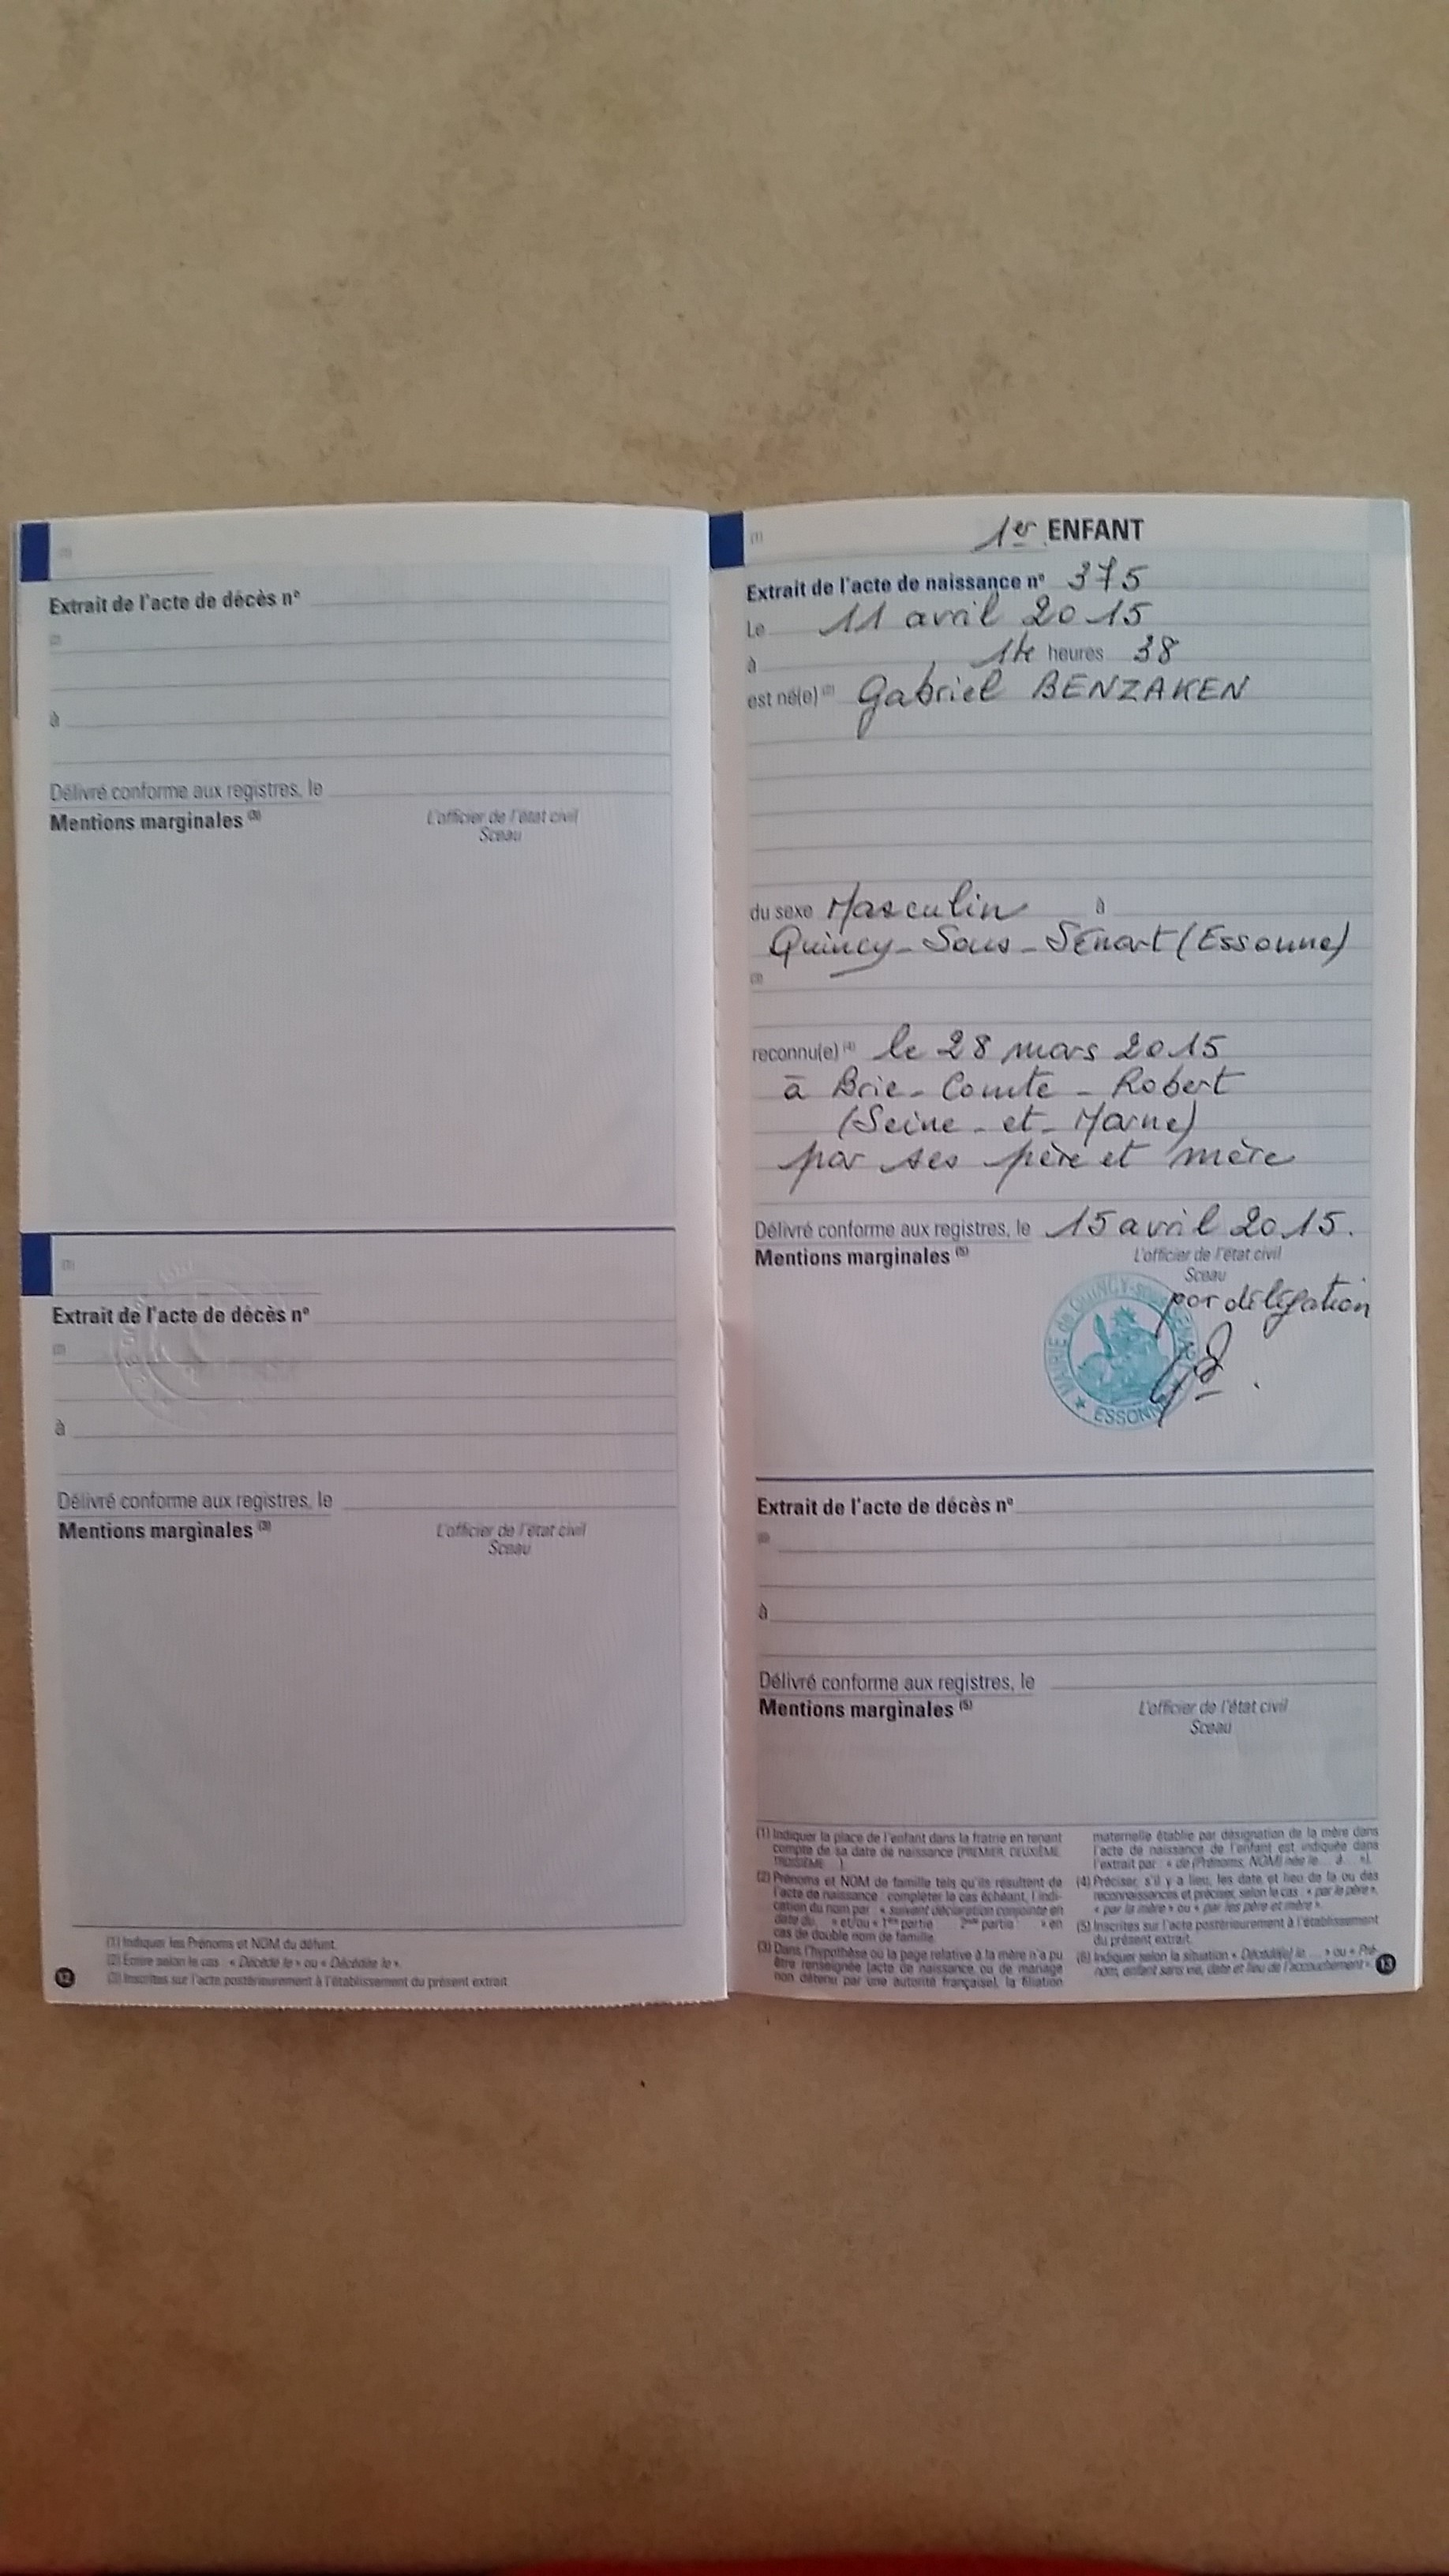 (1)
Extrait de l'acte de décès n°
(2)
à
Délivré conforme aux registres, le
Mentions marginales (3)
L'officier de l'état civil
Sceau
(1)
Extrait de l'acte de décès n°
(2)
à
Délivré conforme aux registres, le
Mentions marginales (3)
L'officier de l'état civil
Sceau
(1) Indiquer les Prénoms et NOM du défunt.
(2) Écrire selon le cas : « Décédé le » ou « Décédée le ».
(3) Inscrites sur l'acte postérieurement à l'établissement du présent extrait.
12
(1)
1er ENFANT
Extrait de l'acte de naissance n° 375
Le 11 avril 2015
à heures 38
est né(e) (2) Gabriel BENZAKEN
du sexe Masculin à
Quincy-Sous-Sénart (Essonne)
(3)
reconnu(e) (4) le 28 mars 2015
à Brie-Comte-Robert
(Seine-et-Marne)
par ses père et mère
Délivré conforme aux registres, le 15 avril 2015.
Mentions marginales (5)
L'officier de l'état civil
Sceau
par délégation
MAIRIE de QUINCY-sous-SENART
ESSONNE
Extrait de l'acte de décès n°
(6)
à
Délivré conforme aux registres, le
Mentions marginales (5)
L'officier de l'état civil
Sceau
(1) Indiquer la place de l'enfant dans la fratrie en tenant
compte de sa date de naissance (PREMIER, DEUXIÈME,
TROISIÈME ...).
(2) Prénoms et NOM de famille tels qu'ils résultent de
l'acte de naissance : compléter le cas échéant, l'indi-
cation du nom par : « suivant déclaration conjointe en
date du... » et/ou « 1ère partie : ... 2nde partie : ... » en
cas de double nom de famille.
(3) Dans l'hypothèse où la page relative à la mère n'a pu
être renseignée (acte de naissance ou de mariage
non détenu par une autorité française), la filiation
maternelle établie par désignation de la mère dans
l'acte de naissance de l'enfant est indiquée dans
l'extrait par : « de (Prénoms, NOM) née le... à... ».
(4) Préciser, s'il y a lieu, les date et lieu de la ou des
reconnaissances et préciser, selon le cas : « par le père »,
« par la mère » ou « par les père et mère ».
(5) Inscrites sur l'acte postérieurement à l'établissement
du présent extrait.
(6) Indiquer selon la situation « Décédé(e) le ... » ou « Pré-
nom, enfant sans vie, date et lieu de l'accouchement ».
13